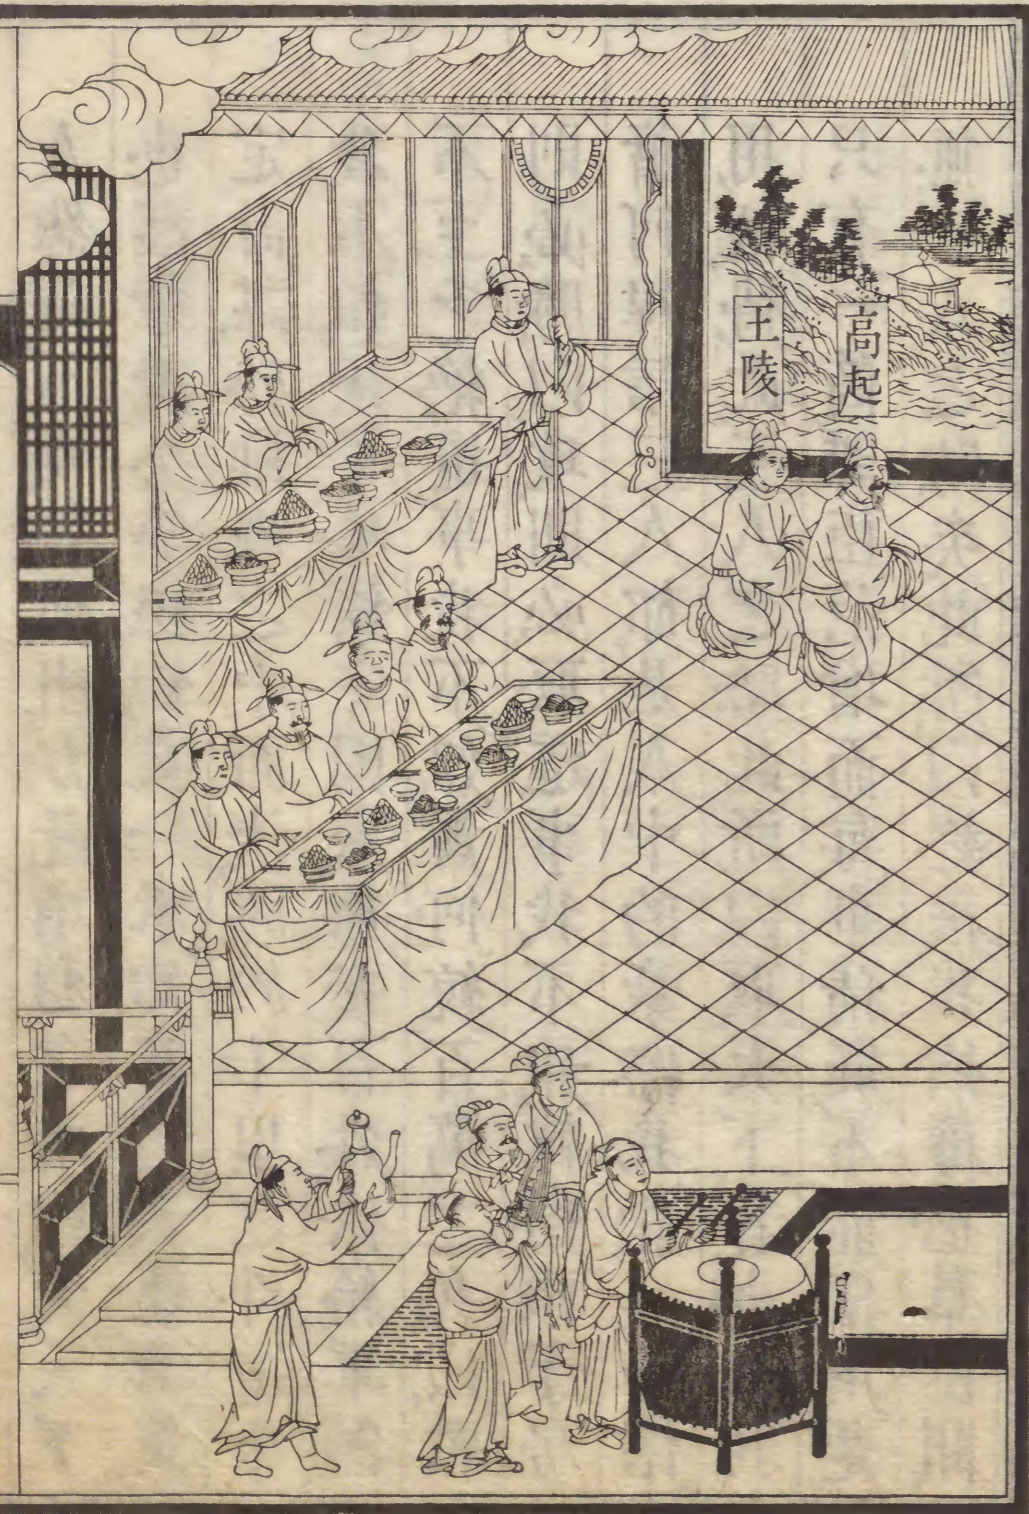 高起
王陵